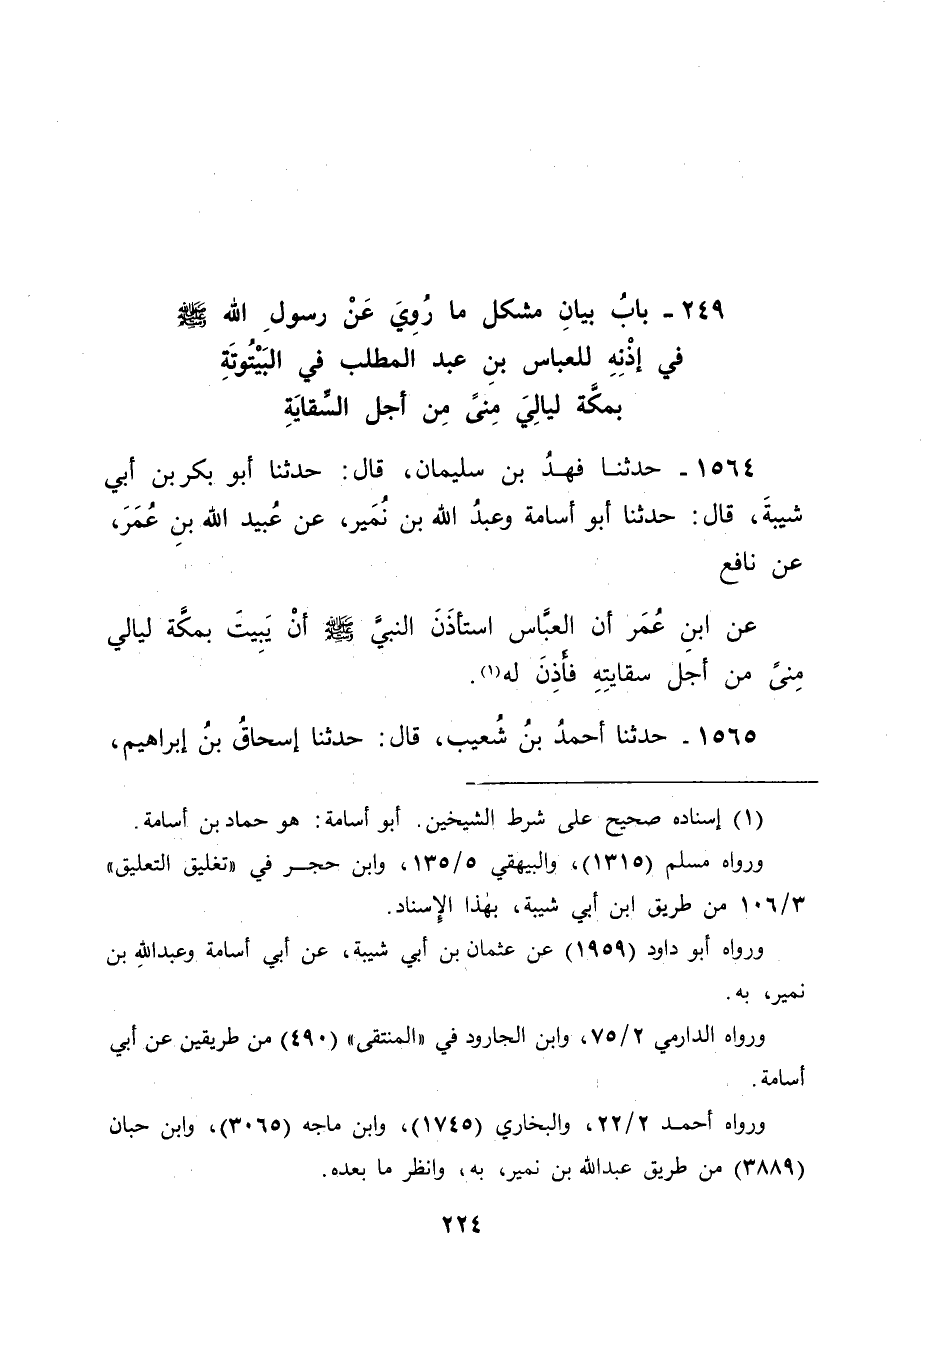 ٢٤٩ - بابُ بيانِ مشكل ما رُوِيَ عَنْ رسولِ الله ﷺ
في إذْنِهِ للعباس بنِ عبد المطلب في البَيْتُوتَةِ
بمكَّة ليالِيَ مِنىً مِن أجل السِّقايَةِ
١٥٦٤ - حدثنا فهدُ بن سليمان، قال: حدثنا أبو بكر بن أبي
شيبةَ، قال: حدثنا أبو أسامة وعبدُ الله بن نُمَير، عن عُبيد الله بنِ عُمَرَ،
عن نافع
عن ابنِ عُمَر أن العبَّاس استأذَنَ النبيَّ ﷺ أنْ يَبِيتَ بمكَّة ليالي
مِنىً من أجل سقايتِهِ فأَذِنَ له(١).
١٥٦٥ - حدثنا أحمدُ بنُ شُعيب، قال: حدثنا إسحاقُ بنُ إبراهيم،
(١) إسناده صحيح على شرط الشيخين. أبو أسامة: هو حماد بن أسامة.
ورواه مسلم (١٣١٥)، والبيهقي ١٣٥/٥، وابن حجر في «تغليق التعليق»
١٠٦/٣ من طريق ابن أبي شيبة، بهٰذا الإِسناد.
ورواه أبو داود (١٩٥٩) عن عثمان بن أبي شيبة، عن أبي أسامة وعبدالله بن
نمير، به.
ورواه الدارمي ٧٥/٢، وابن الجارود في «المنتقى» (٤٩٠) من طريقين عن أبي
أسامة.
ورواه أحمد ٢٢/٢، والبخاري (١٧٤٥)، وابن ماجه (٣٠٦٥)، وابن حبان
(٣٨٨٩) من طريق عبدالله بن نمير، به، وانظر ما بعده.
٢٢٤